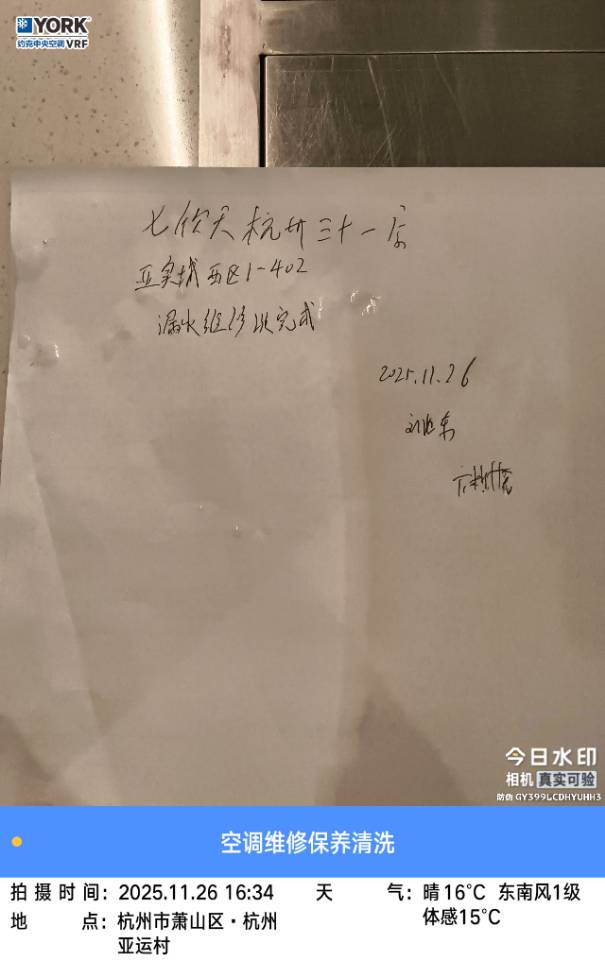 YORK®
约克中央空调 VRF
七欣天杭州三十一店
亚奥城西区1-402
漏水维修已完成
2025.11.26
今日水印
相机 真实可验
防伪 GY399LCDHYUHH3
空调维修保养清洗
拍摄时间：2025.11.26 16:34
天气：晴 16℃ 东南风1级
体感15℃
地点：杭州市萧山区·杭州
亚运村